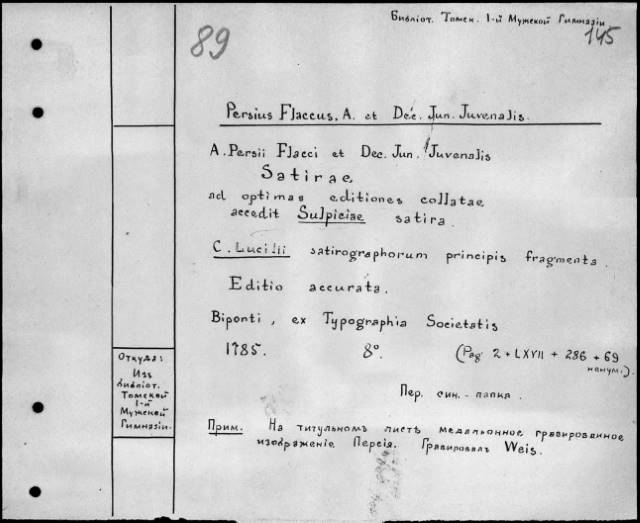 Библіот. Томск. 1-й Мужской Гимназіи
89
145
Persius Flaccus, A. et Dec. Jun. Juvenalis.
A. Persii Flacci et Dec. Jun. Juvenalis
Satirae
ad optimas editiones collatae
accedit Sulpiciae satira.
C. Lucilii satirographorum principis fragmenta.
Editio accurata.
Biponti, ex Typographia Societatis
1785. 8°. (Pag. 2 + LXVII + 286 + 69
ненум.).
Пер. син. - папка.
Откуда:
Изъ
библіот.
Томской
1-й
Мужской
Гимназіи.
Прим. На титульномъ листѣ медальонное гравированное
изображеніе Персія. Гравировалъ Weis.